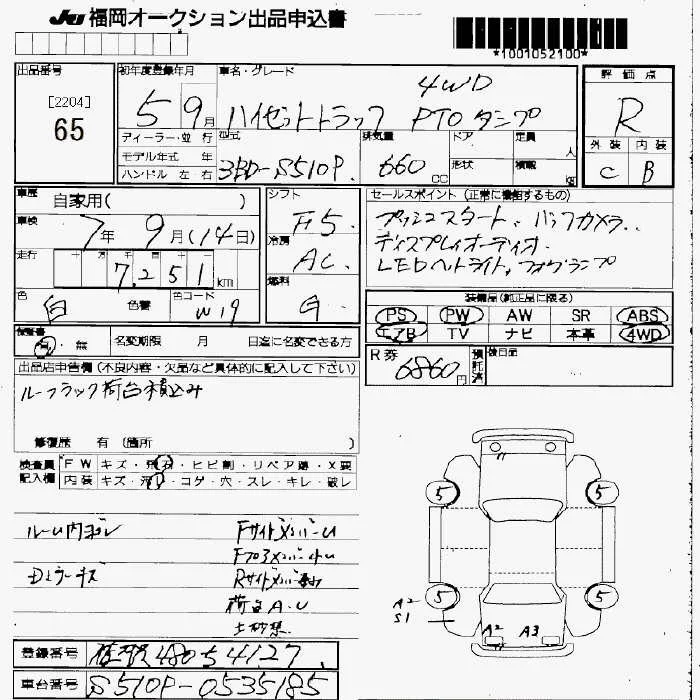 JU 福岡オークション出品申込書
*1001052100*
出品番号
[2204]
65
初年度登録年月
5 9月
車名・グレード
4WD
ハイゼットトラック PTOダンプ
評価点
R
外装 内装
C B
ディーラー・並 行
モデル年式 年
ハンドル 左 右
型式
3BD-S510P
排気量
660cc
ドア
形状
定員
人
積載
kg
車歴
自家用( )
車検
7年 9月(14日)
走行
7,251km
色
白
色替
色コード
W19
シフト
F5
冷房
AC
燃料
G
セールスポイント (正常に機能するもの)
プッシュスタート、バックカメラ、
ディスプレイオーディオ、
LEDヘッドライト、フォグランプ
装備品(純正品に限る)
PS PW AW SR ABS
エアB TV ナビ 本革 4WD
保証書
有・無
名変期限 月 日迄に名変できる方
R券
6860円
預託済
後日品
出品店申告欄(不良内容・欠品など具体的に記入して下さい)
ルーフラック荷台積込み
修復歴 有 (箇所
検査員記入欄
FW キズ・飛石・ヒビ割・リペア跡・X要
内装 キズ・汚レ・コゲ・穴・スレ・キレ・破レ
ルーム内ヨゴレ
Fサイドメンバー U
Dミラーキズ
荷台A.U
5 5
5 5
A2
S1
A2 A3
登録番号
48054127
車台番号
S510P-0535185